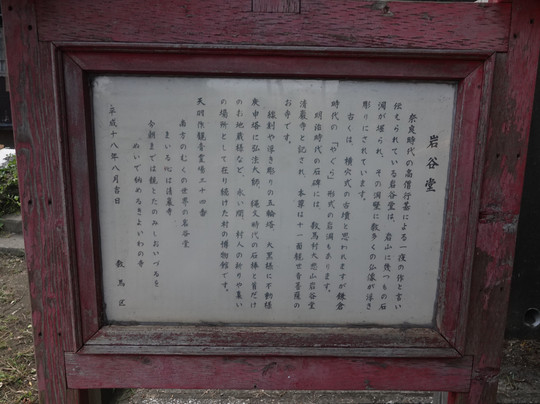 岩谷堂
奈良時代の高僧行基による一夜の作と言い
伝えられている岩谷堂は、岩山に幾つもの石
洞が堀られ、その洞壁に数多くの仏像が浮き
彫りにされています。
古くは、横穴式の古墳と思われますが鎌倉
時代の「やぐら」形式の岩洞もあります。
明治時代の石碑には、数馬村大悲山岩谷堂
清巖寺と記され、本尊は十一面観世音菩薩の
お寺です。
線刻や浮き彫りの五輪塔、大黒様に不動様
庚申塔に弘法大師、縄文時代の石棒と首だけ
のお地蔵様など、永い間、村人の祈りや集い
の場所として在り続けた村の博物館です。
天明作観音霊場三十四番
南方のむくの世界の岩谷堂
まいる心は清巖寺
今朝までは親とたのみしおいづるを
ぬいで納めるきよいわの寺
平成十八年八月吉日
数馬区